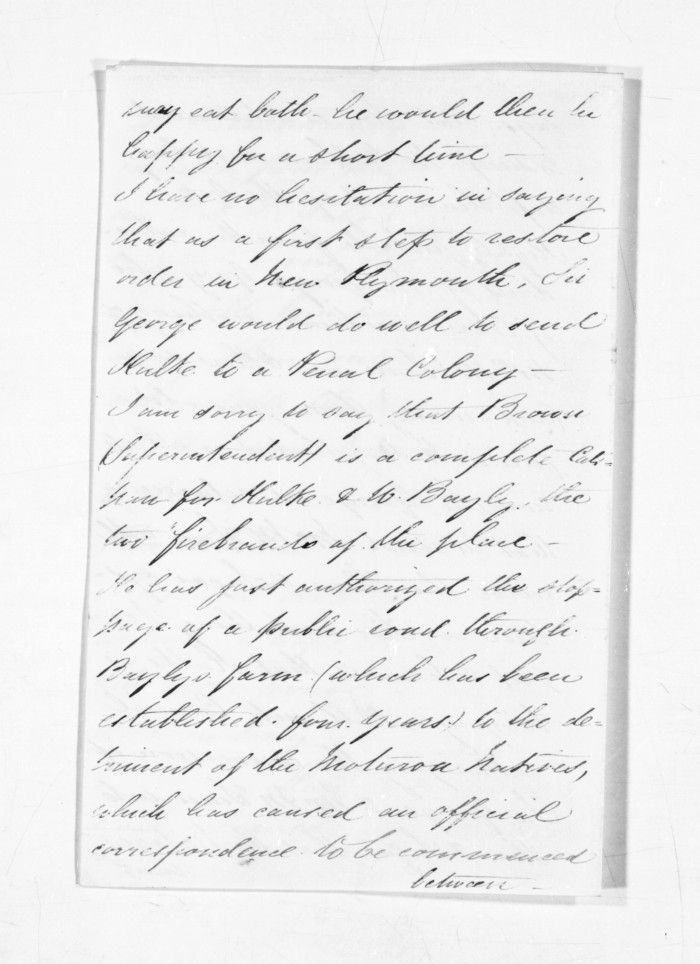 may eat both - he would then be
happy for a short time -
I have no hesitation in saying
that as a first step to restore
order in New Plymouth, Sir
George would do well to send
Hulke to a Penal Colony -
I am sorry to say that Brown
(Superintendent) is a complete Cats-
paw for Hulke & W. Bayly, the
two firebrands of the place -
He has just authorized the stop-
page of a public road through
Bayly's farm (which has been
established four years) to the de-
triment of the Moturoa Natives,
which has caused an official
correspondence to be commenced
between -